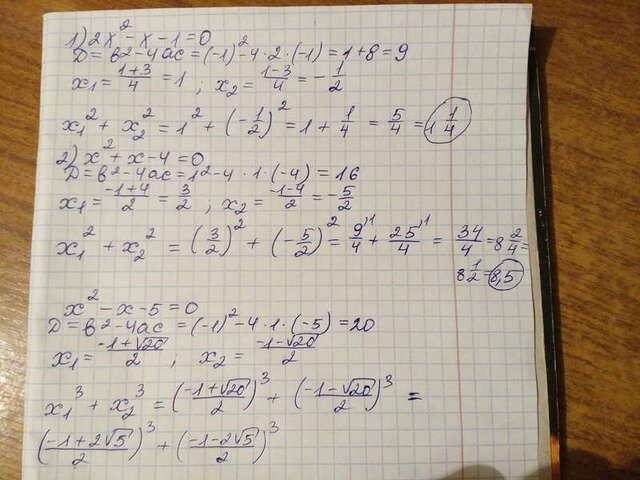 1) 2x² - x - 1 = 0
D = b² - 4ac = (-1)² - 4 · 2 · (-1) = 1 + 8 = 9
x₁ = (1+3)/4 = 1 ; x₂ = (1-3)/4 = -1/2
x₁² + x₂² = 1² + (-1/2)² = 1 + 1/4 = 5/4 = 1 1/4
2) x² + x - 4 = 0
D = b² - 4ac = 1² - 4 · 1 · (-4) = 16
x₁ = (-1+4)/2 = 3/2 ; x₂ = (-1-4)/2 = -5/2
x₁² + x₂² = (3/2)² + (-5/2)² = 9\1/4 + 25\1/4 = 34/4 = 8 2/4 =
8 1/2 = 8,5
x² - x - 5 = 0
D = b² - 4ac = (-1)² - 4 · 1 · (-5) = 20
x₁ = (-1+√20)/2 ; x₂ = (-1-√20)/2
x₁³ + x₂³ = ((-1+√20)/2)³ + ((-1-√20)/2)³ =
((-1+2√5)/2)³ + ((-1-2√5)/2)³